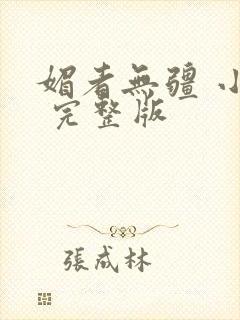 媚者無疆 小
完整版
張成林